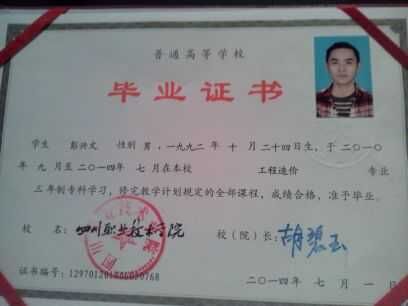 普通高等学校
毕业证书
学生 彭兴文 性别 男，一九九二年 十 月 二十四日生，于 二〇一〇
年 九 月至 二〇一四年 七 月在本校 工程造价 专业
三 年制专科学习，修完教学计划规定的全部课程，成绩合格，准予毕业。
校 名：四川职业技术学院 校（院）长：胡碧玉
证书编号：
二〇一四年 七 月 一 日